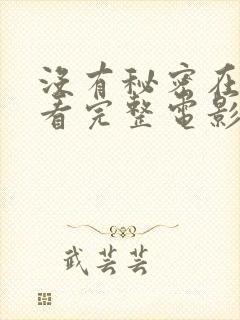 没有秘密在
看完整电影
武芸芸